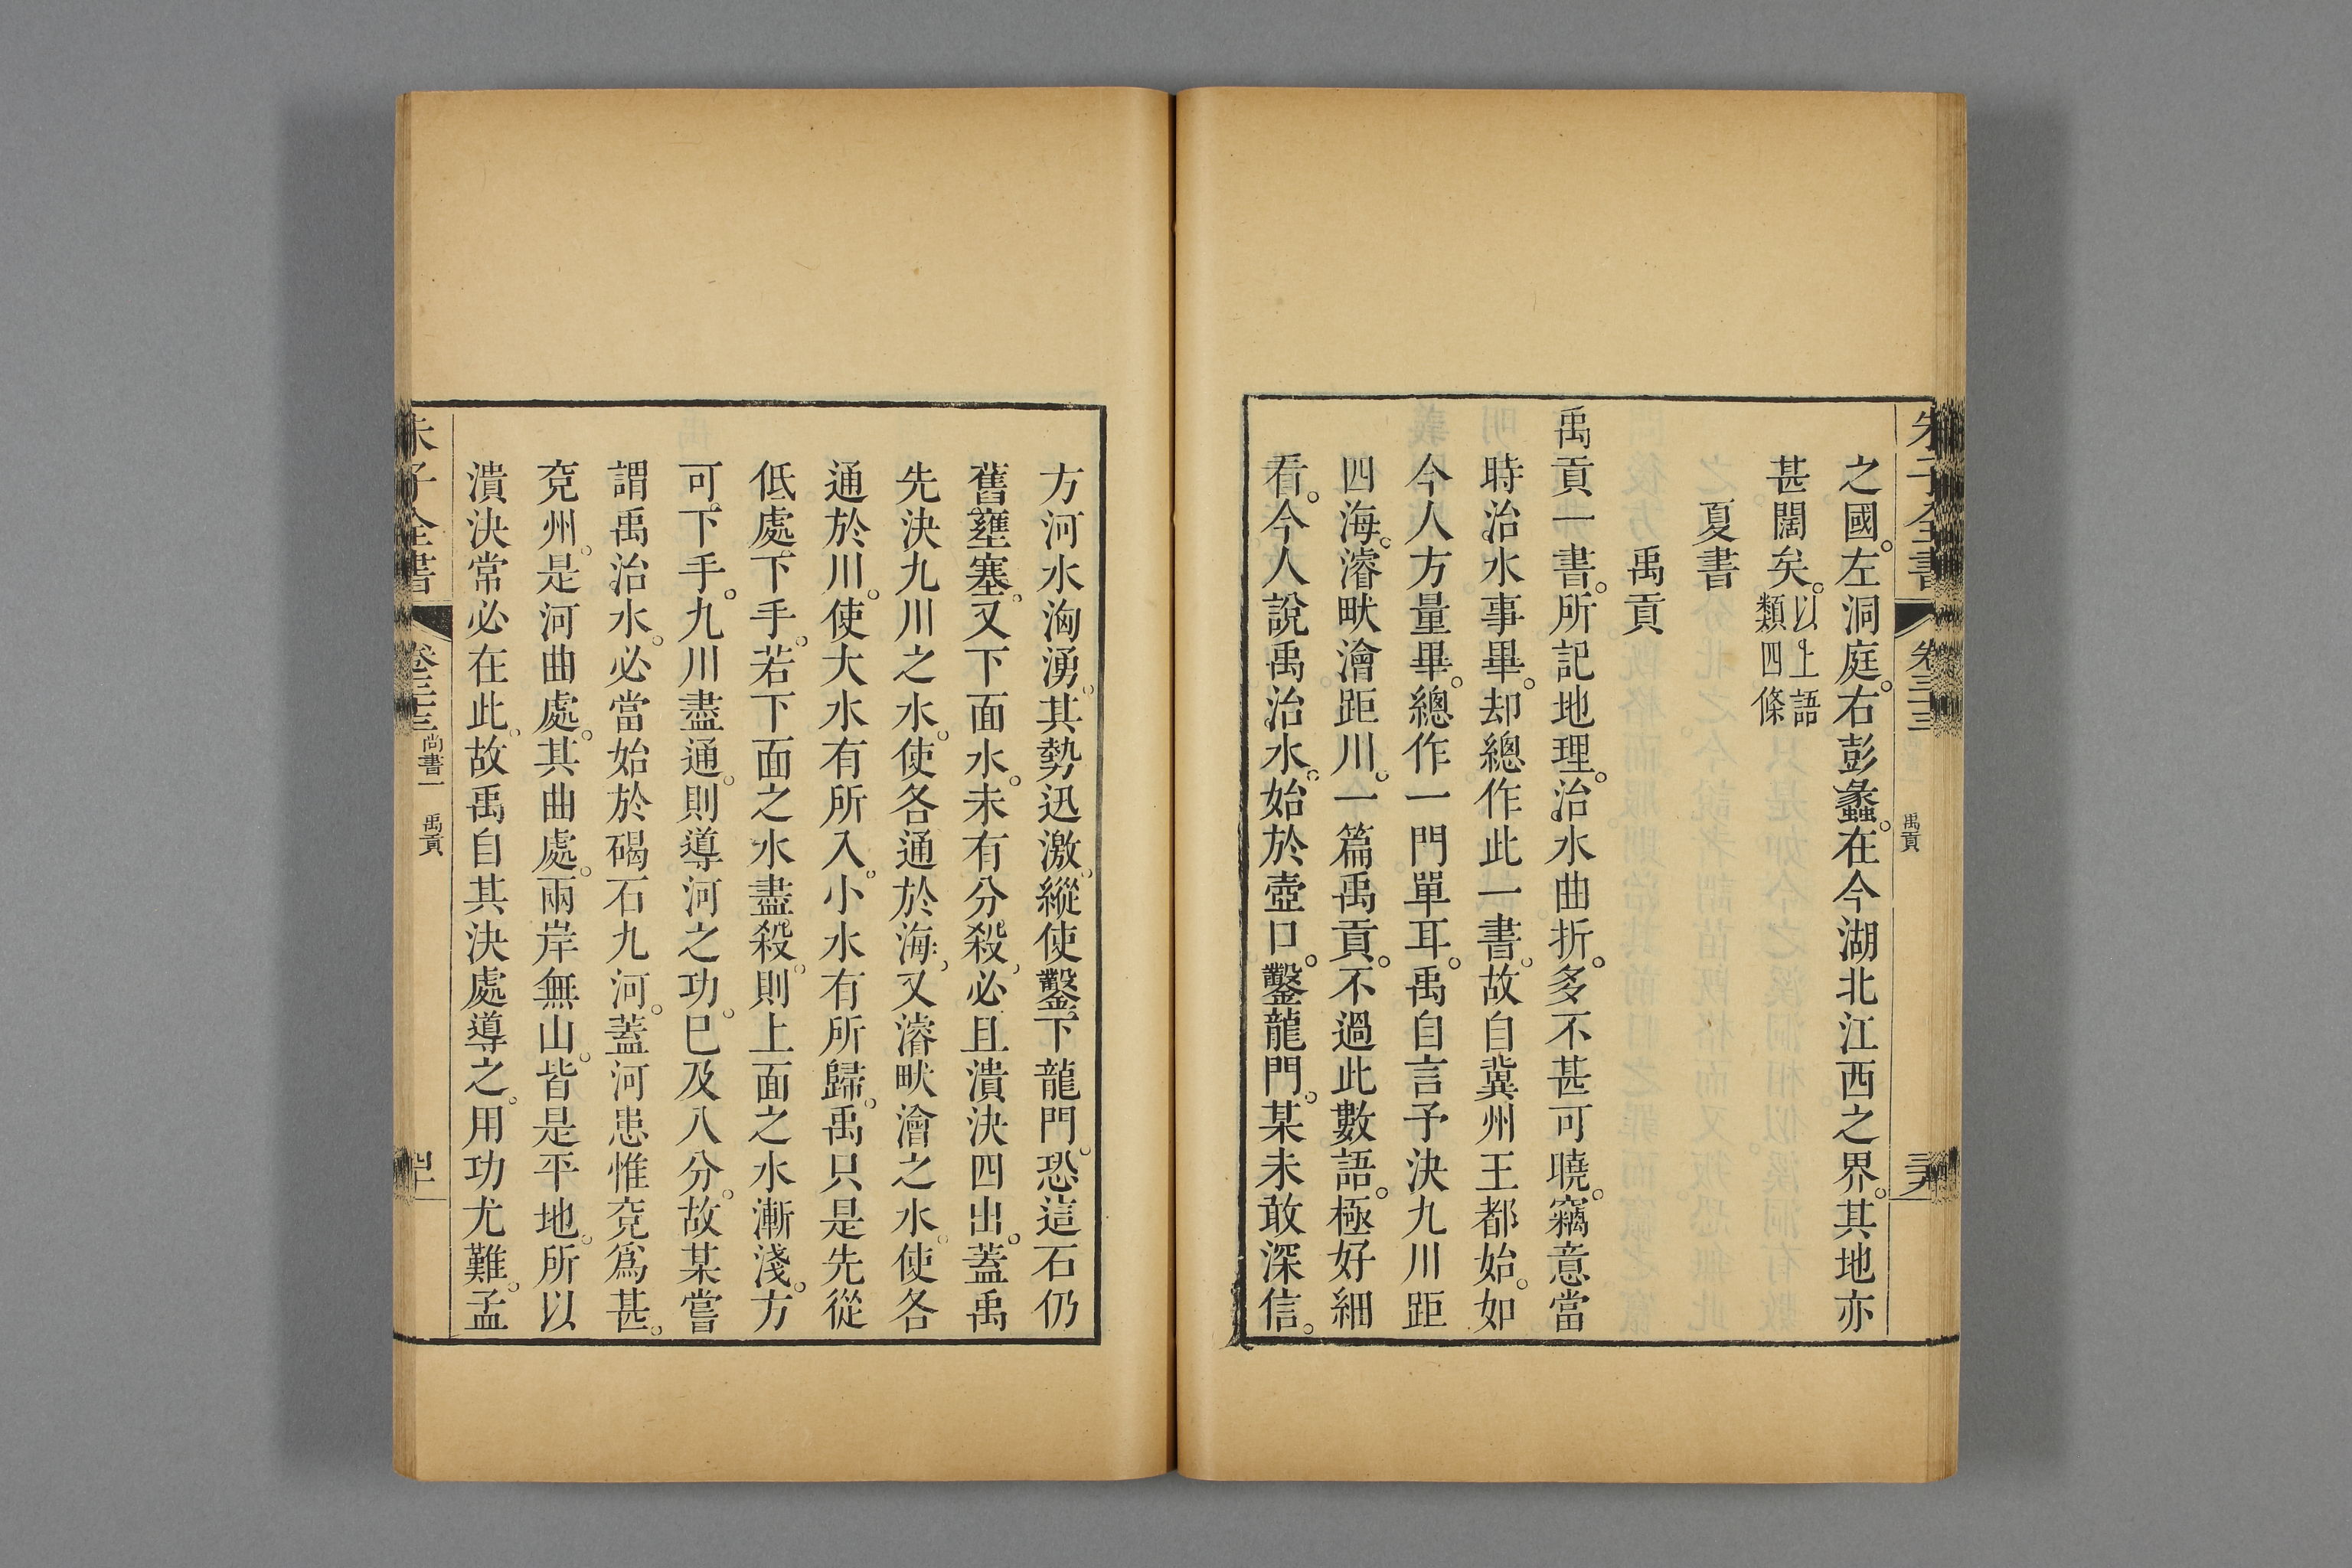 之國。左洞庭。右彭蠡。在今湖北江西之界。其地亦
甚闊矣。以上語類四條
夏書
禹貢
禹貢一書。所記地理。治水曲折。多不甚可曉。竊意當
時治水事畢。却總作此一書。故自冀州王都始。如
今人方量畢。總作一門單耳。禹自言予決九川距
四海。濬畎澮距川。一篇禹貢。不過此數語。極好細
看。今人說禹治水。始於壺口。鑿龍門。某未敢深信。
方河水洶湧。其勢迅激。縱使鑿下龍門。恐這石仍
舊壅塞。又下面水。未有分殺。必且潰決四出。蓋禹
先決九川之水。使各通於海。又濬畎澮之水。使各
通於川。使大水有所入。小水有所歸。禹只是先從
低處下手。若下面之水盡殺。則上面之水漸淺。方
可下手。九川盡通。則導河之功。已及八分。故某嘗
謂禹治水。必當始於碣石九河。蓋河患惟兗爲甚。
兗州。是河曲處。其曲處。兩岸無山。皆是平地。所以
潰決常必在此。故禹自其決處導之。用功尤難。孟
朱子全書
卷三十三
尚書一
禹貢